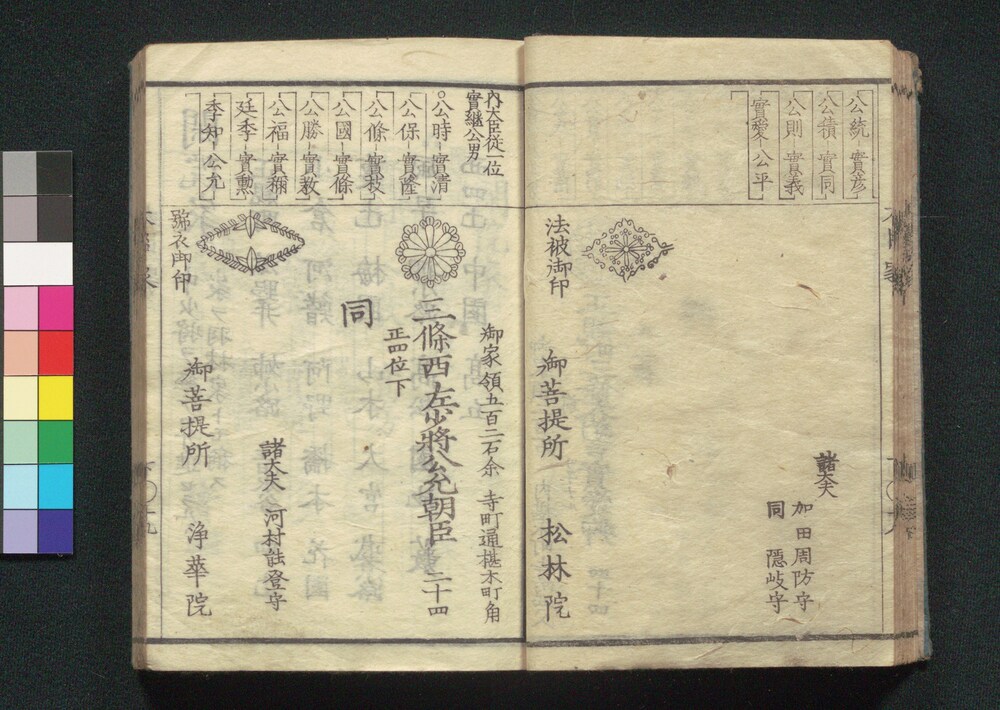 公統 實彦
公積 實同
公則 實義
實愛 公平
諸大夫
加田周防守
同 隱岐守
法被御印
御菩提所 松林院
内大臣従一位
實継公男
公時 實清
公保 實隆
公條 實枝
公國 實條
公勝 實教
公福 實稱
廷季 實勲
季知 公允
御家領五百二石余 寺町通椹木町角
三條西左少將公允朝臣 二十四
正四位下
同
諸大夫 河村能登守
號衣御印
御菩提所 浄華院